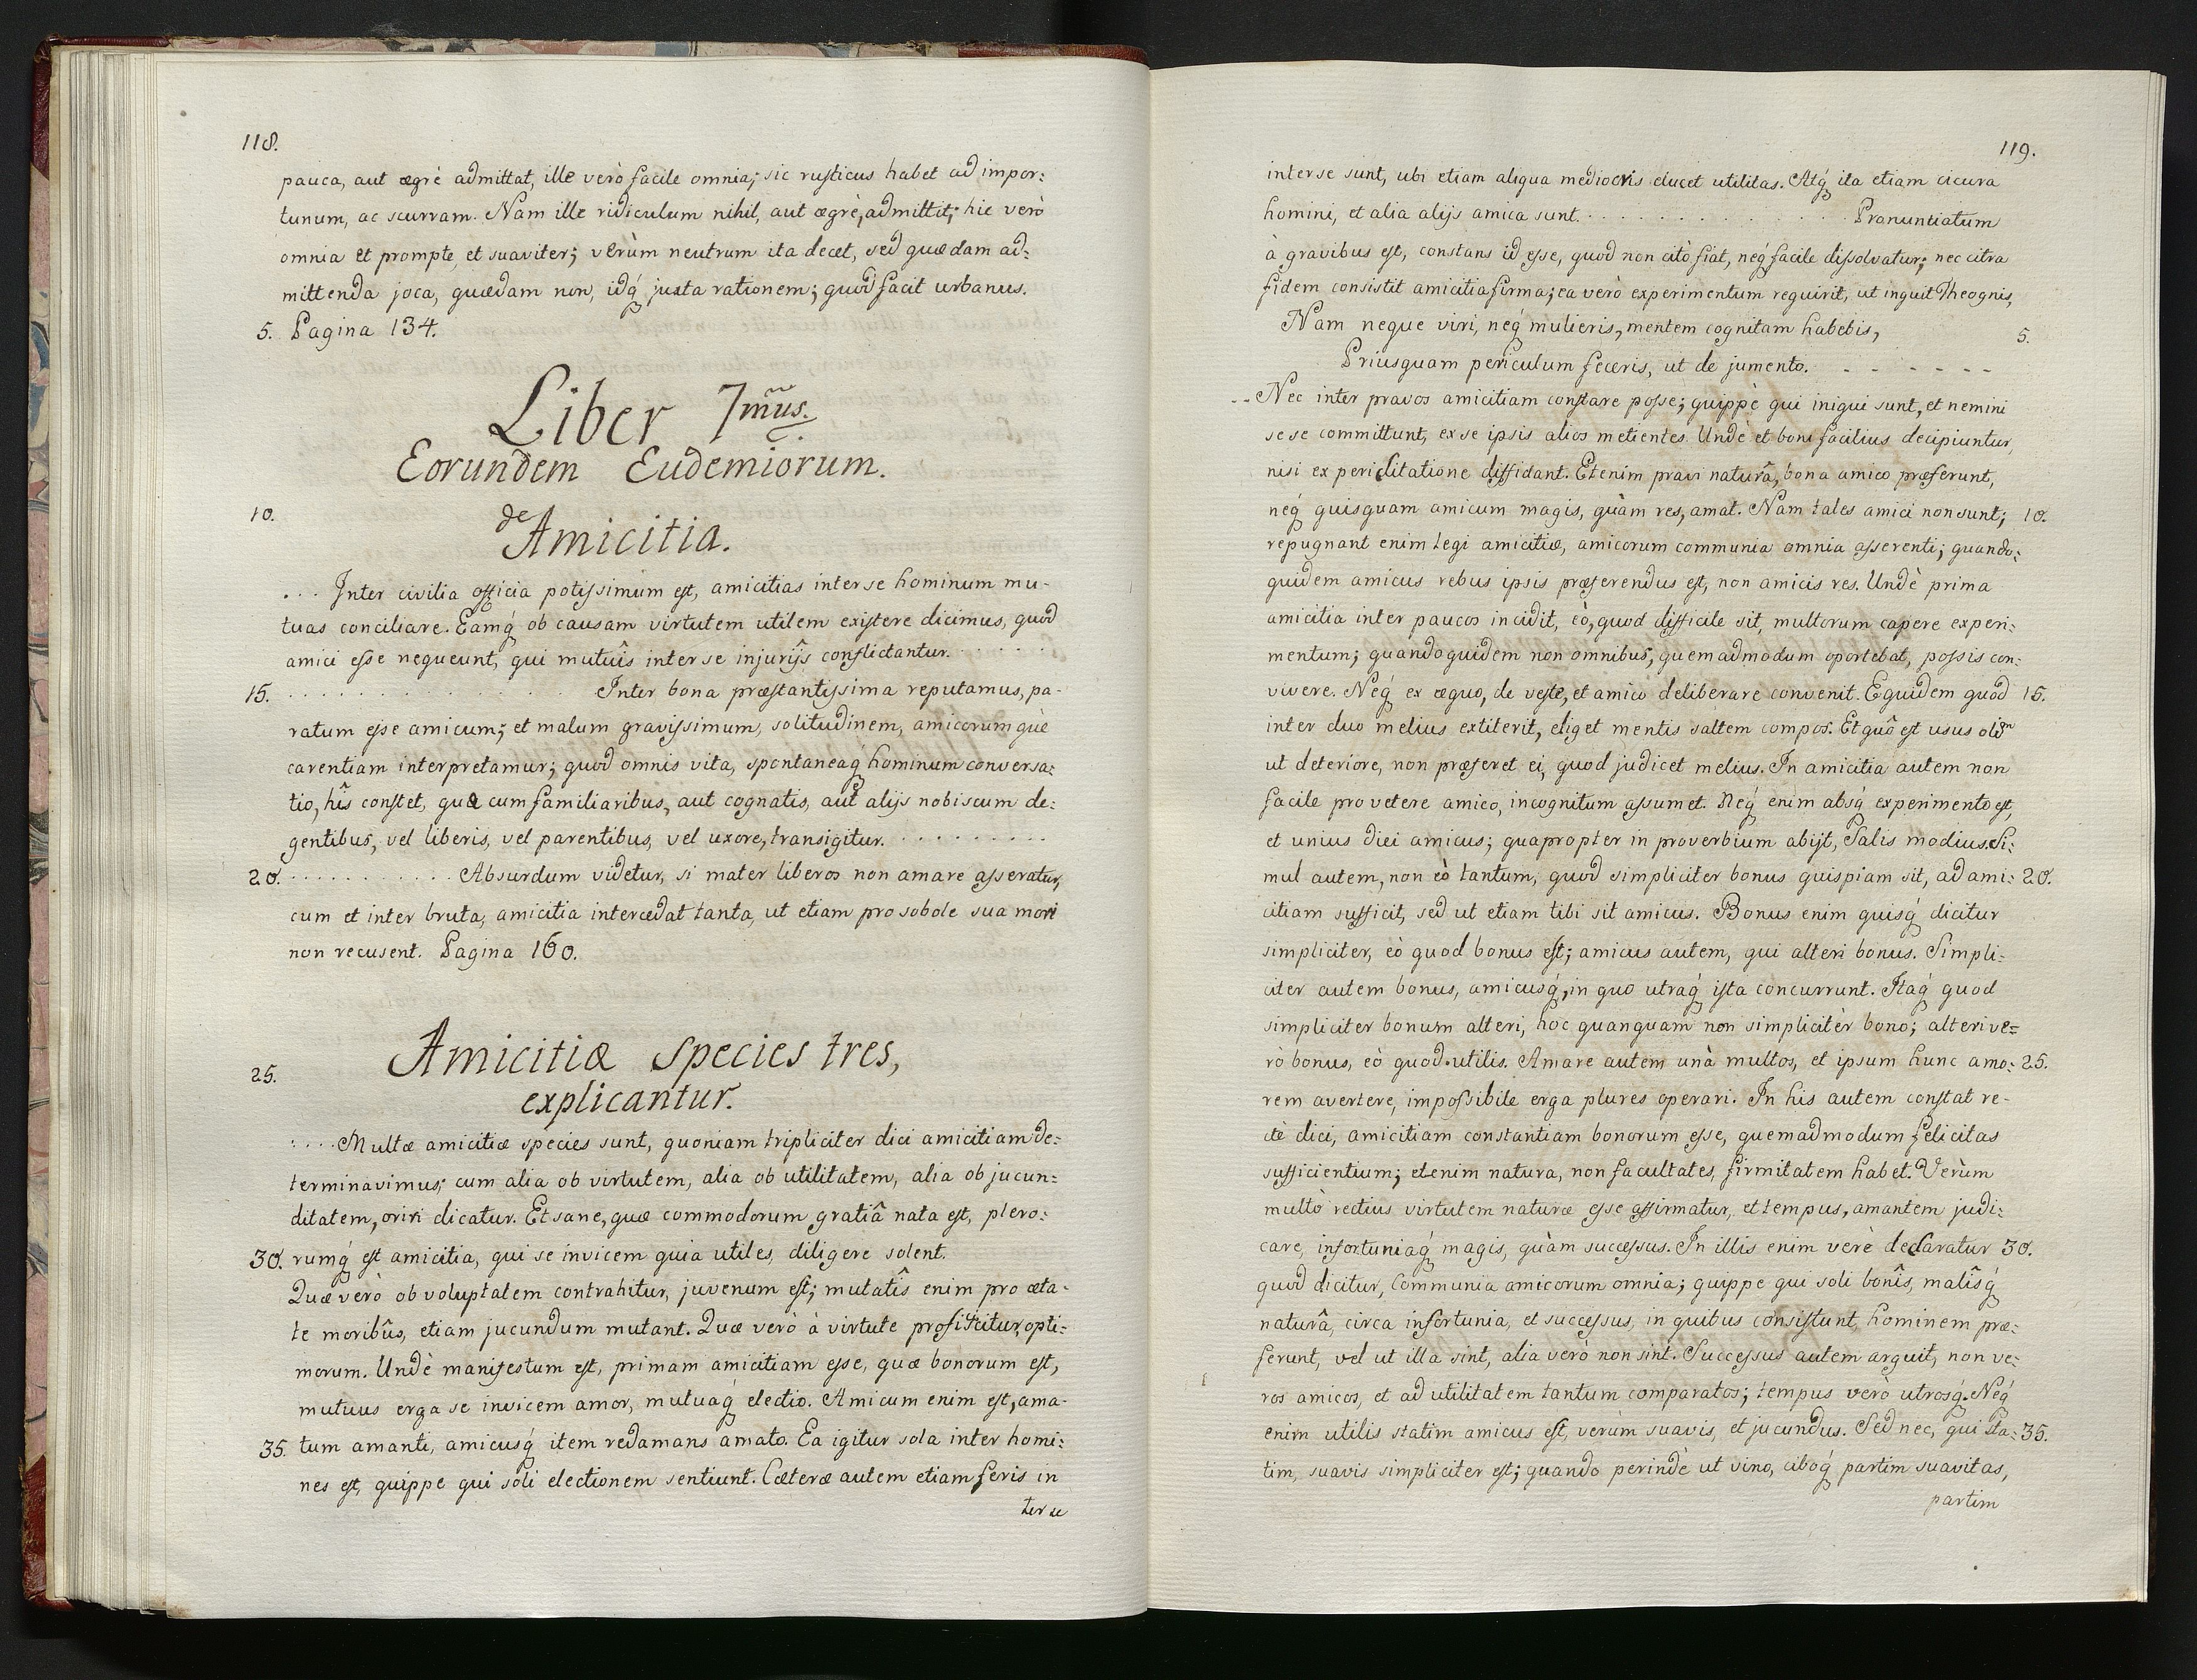 118.
pauca, aut ægrè admittat, ille verò facile omnia; sic rusticus habet ad impor:
tunum, ac scurram. Nam ille ridiculum nihil, aut ægrè, admittit; hic verò
omnia et prompte, et suaviter; verùm neutrum ita decet, sed quædam ad:
mittenda joca, quædam non, idq́ juxta rationem; quod facit urbanus.
5. Pagina 134.
Liber 7mũs.
Eorundem Eudemiorum.
10.
de Amicitia.
... Inter civilia officia potissimum est, amicitias inter se hominum mu-
tuas conciliare. Eamq́ ob causam virtutem utilem existere dicimus, quod
amici esse nequeunt, qui mutuîs inter se injurijs conflictantur. . . . . .
15. . . . . . . . . . . . . Inter bona præstantissima reputamus, pa-
ratum esse amicum; et malum gravissimum, solitudinem, amicorum què
carentiam interpretamur; quod omnis vita, spontaneaq́ hominum conversa:
tio, hîs constet, quæ cum familiaribus, aut cognatis, aut alijs nobiscum de:
gentibus, vel liberis, vel parentibus, vel uxore, transigitur. . . . . . . . .
20. . . . . . . . . . . . Absurdum videtur, si mater liberos non amare asseratur,
cum et inter bruta, amicitia intercedat tanta, ut etiam pro sobole sua mori
non recusent. Pagina 160.
Amicitiæ species tres,
25.
explicantur.
. . . . Multæ amicitiæ species sunt, quoniam tripliciter dici amicitiam de:
terminavimus; cum alia ob virtutem, alia ob utilitatem, alia ob jucun:
ditatem, oriri dicatur. Et sane, quæ commodorum gratiâ nata est, plero:
30. rumq́ est amicitia, qui se invicem quia utiles, diligere solent.
Quæ verò ob voluptatem contrahitur, juvenum est; mutatîs enim pro æta-
te moribûs, etiam jucundum mutant. Quæ verò à virtute proficitcitur, opti:
morum. Undè manifestum est, primam amicitiam esse, quæ bonorum est,
mutuus erga se invicem amor, mutuaq́ electio. Amicum enim est, ama-
35. tum amanti, amicusq́ item redamans amato. Ea igitur sola inter homi:
nes est, quippe qui soli electionem sentiunt. Cæteræ autem etiam feris in
ter se
119.
inter se sunt, ubi etiam aliqua mediocris elucet utilitas. Atq́ ita etiam cicura
homini, et alia alijs amica sunt. . . . . . . . . . . . . . . Pronuntiatum
à gravibus est, constans id esse, quod non citò fiat, neq́ facile dissolvatur; nec citra
fidem consistit amicitia firma; ea verò experimentum requirit, ut inquit Theognis,
Nam neque viri, neq́ mulieris, mentem cognitam habebis, 5.
Priusquam periculum feceris, ut de jumento. - - - - - -
-- Nec inter pravos amicitiam constare posse; quippè qui iniqui sunt, et nemini
se se committunt, ex se ipsis alios metientes. Undè et boni facilius decipiuntur,
nisi ex periclitatione diffidant. Etenim pravi naturâ, bona amico præferunt,
neq́ quisquam amicum magis, quàm res, amat. Nam tales amici non sunt; 10.
repugnant enim legi amicitiæ, amicorum communia omnia asserenti; quando:
quidem amicus rebus ipsis præferendus est, non amicis res. Undè prima
amicitia inter paucos incidit, eò, quod difficile sit, multorum capere experi:
mentum; quandoquidem non omnibus, quemadmodum oportebat, possis con:
vivere. Neq́ ex æquo, de veste, et amico deliberare convenit. Equidem quod 15.
inter duo melius extiterit, eliget mentis saltem compos. Et quô est usus olim
ut deteriore, non præferet ei, quod judicet melius. In amicitia autem non
facile pro vetere amico, incognitum assumet. Neq́ enim absq́ experimento est,
et unius diei amicus; quapropter in proverbium abijt, Salis modius. Si:
mul autem, non eò tantum, quod simpliciter bonus quispiam sit, ad ami: 20.
citiam sufficit, sed ut etiam tibi sit amicus. Bonus enim quisq́ dicitur
simpliciter, eò quod bonus est; amicus autem, qui alteri bonus. Simpli:
citer autem bonus, amicusq́, in quo utraq́ ista concurrunt. Itaq́ quod
simpliciter bonum alteri, hoc quanquam non simplicitèr bono; alteri ve=
rò bonus, eò quod utilis. Amare autem unà multos, et ipsum hunc amo: 25.
rem avertere, impossibile erga plures operari. In his autem constat re-
ctè dici, amicitiam constantiam bonorum esse, quemadmodum felicitas
sufficientium; etenim natura, non facultates, firmitatem habet. Verùm
multò rectius virtutem naturæ esse affirmatur, et tempus, amantem judi:
care, infortuniaq́ magis, quàm successus. In illis enim verè declaratur 30.
quod dicitur, Communia amicorum omnia; quippe qui soli bonîs, malîsq́
naturâ, circa infortunia, et successus, in quibus consistunt, hominem præ:
ferunt, vel ut illa sint, alia verò non sint. Successus autem arguit, non ve:
ros amicos, et ad utilitatem tantum comparatos; tempus verò utrosq́. Neq́
enim utilis statim amicus est, verùm suavis, et jucundus. Sed nec, qui sta: 35.
tim, suavis simpliciter est; quando perindè ut vino, ciboq́ partim suavitas,
partim